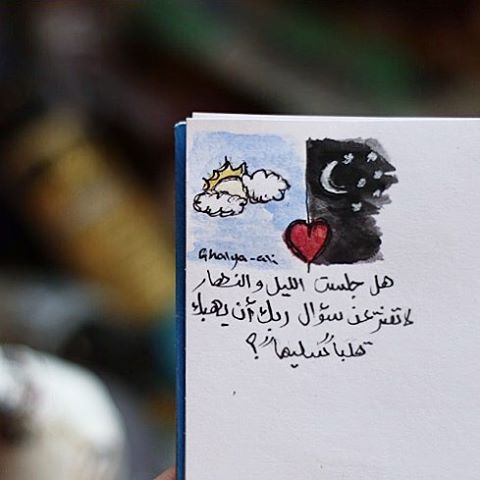 Ghalya-ali
هل جلست الليل والنهار
لا تفتر عن سؤال ربك أن يهبك
قلبا سليما ؟